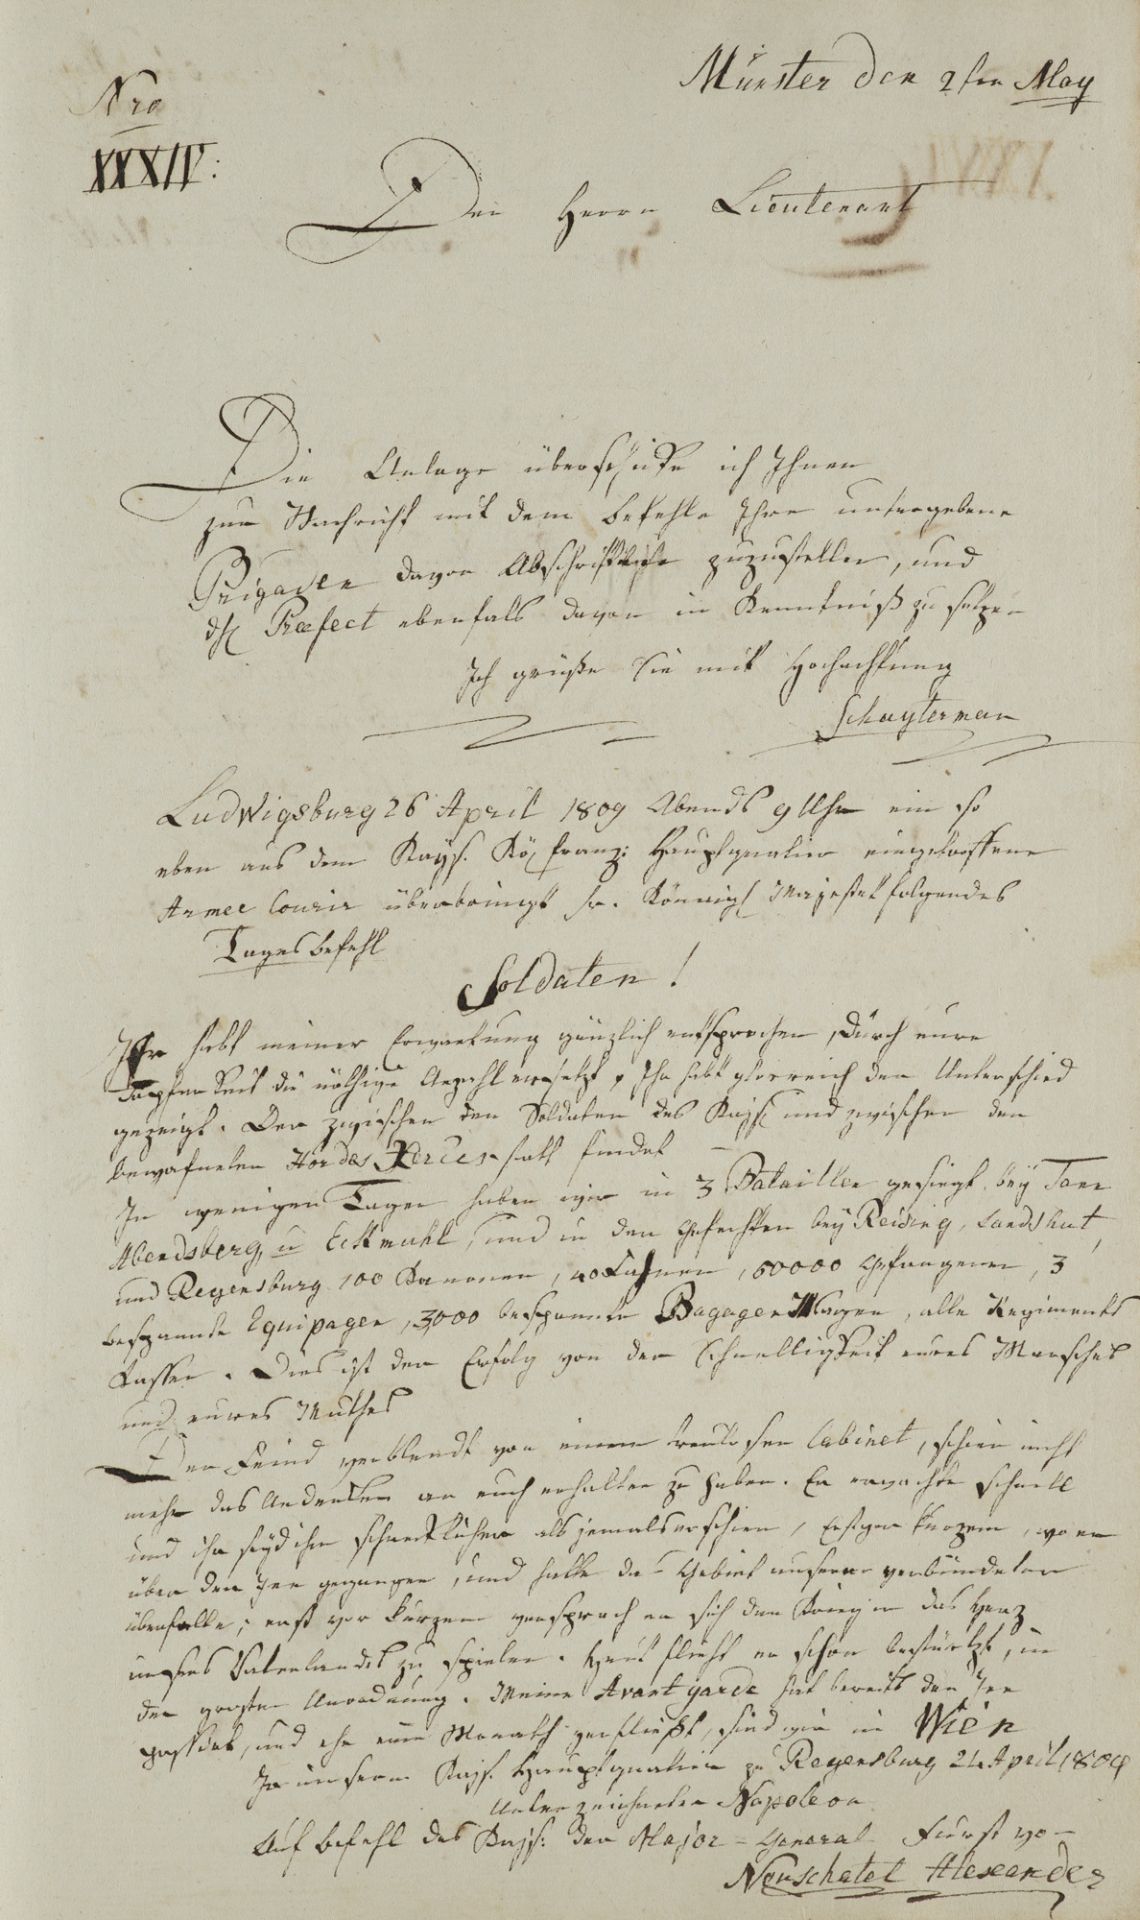 Münster den 2ten May
Nro
XXXIV:
Den Herrn Lieutenant
Die Anlage überschicke ich Ihnen
zur Nachricht mit dem befehle Ihre untergebene
Brigaden davon Abschriftliche zuzustellen, und
Præfect ebenfals davon in Kenntniß zu setzen
Ich grüße Sie mit Hochachtung
Schuyterman
Ludwigsburg 26 April 1809 Abends 9 Uhr ein so
eben aus dem Kays. Kö franz: Hauptquatier eingetroffene
Armee Courir überbringt sr. Königl Majestät folgendes
Tages befehl
Soldaten!
Ihr habt meiner Erwartung gänzlich entsprochen, Durch eure
Tapferkeit die nöthige Anzahl ersetzt, Ihr habt glorreich den Unterschied
gezeigt. Der zwischen den Soldaten des Kays. und zwischen den
bewafneten Hordes Xerces statt findet
In wenigen Tagen haben wir in 3 Bataillen gesiegt bey Tann
Abendsberg, u Eckmuhl, und in den Gefechten bey Reising, Landshut,
und Regensburg 100 Kanonen, 40 Fahnen, 50000 Gefangene, 3
bespannte Equipagen, 3000 bespannte Bagagen Wagen, alle Regiments
Kassen. Dies ist der Erfolg von der Schnelligkeit eures Marsches
und eures Muthes
Der Feind verblendt von einem treulosen Cabinet, schien nicht
mehr das Andenken an euch erhalten zu haben. Er erwachte schnell
und ihr seyd ihm schrecklicher als jemals erschien, kurzem, wo er
über den Inn gegangen, und hatte das Gebiet unserer verbündeten
überfalle; erst vor kurzem versprach er sich den Krieg in das Herz
unsers Vaterlandes zu spielen. Heut flieht er schon bestürtzt, in
der grosten Unordnung. Meine Avant garde hat bereits den Inn
passirt, und ehe ein Monath verfließt, sind wir in Wien
In unserm Kays. Hauptquatier zu Regensburg 24 April 1809
Unterzeichneter Napoleon
Auf befehl des Kays: der Major-General Fürst vo-
Neuschatel Alexander